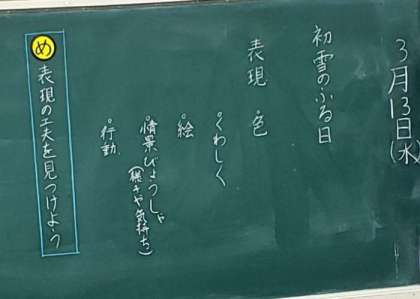 3月13日(水)
初雪のふる日
表現 °色
°くわしく
°絵
°情景びょうしゃ
(様子や気持ち)
°行動
め 表現の工夫を見つけよう